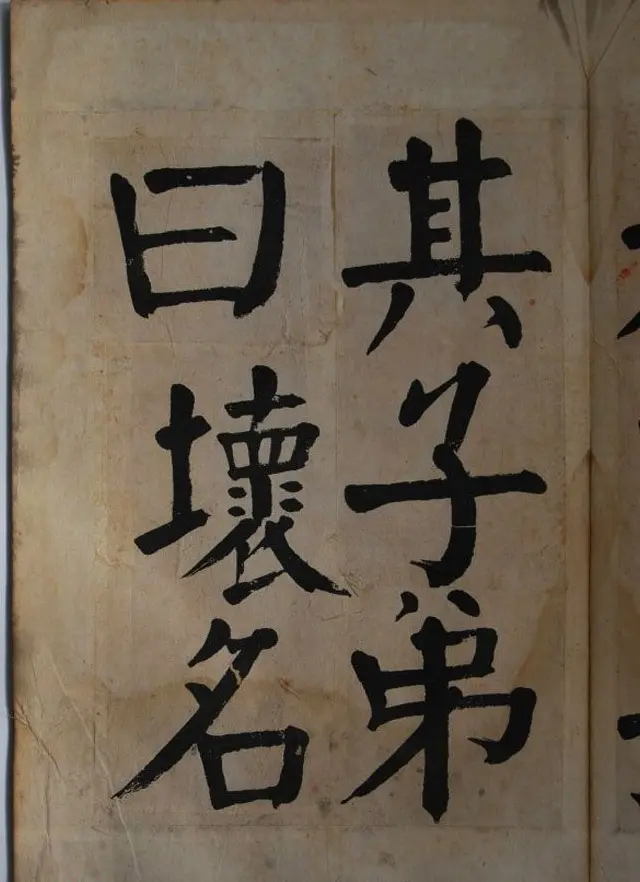 其子弟
曰壞名